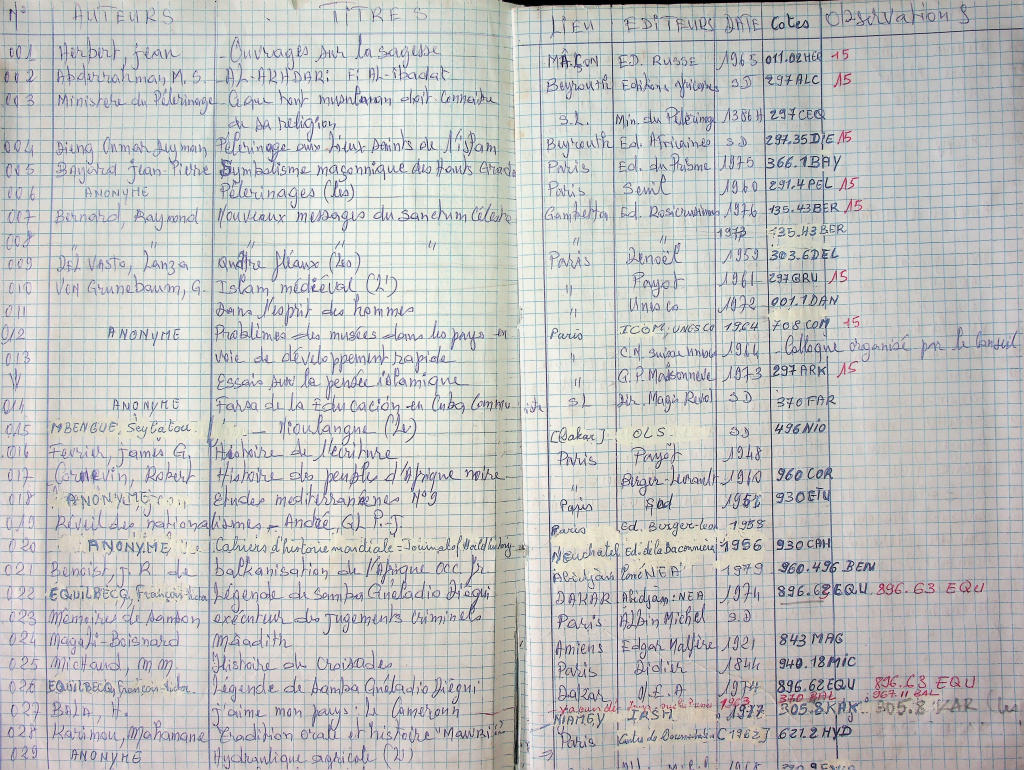 N° AUTEURS TITRES LIEU EDITEURS DATE Cotes Observations
001 Herbert, Jean Ouvrages sur la sagesse MÂCON ED. RUSSE 1965 011.02HEQ 15
002 Abderrahman, M.S. AL-AKHDARI Fi AL-ibadat Beyrouth Editions africaines SD 297ALC 15
003 Ministère du Pélerinage Ce que tout musulman doit connaitre
de sa religion S.L. Min. du Pélerinage 1386H 297CEQ
004 Dieng Oumar Pélerinage aux lieux saints de l'islam Beyrouth Ed. Africaines SD 297.35DIE 15
005 Bayard Jean-Pierre Symbolisme maçonnique des Hauts Grades Paris Ed. du Prisme 1975 366.1BAY
006 ANONYME Pélerinages (les) Paris Seuil 1960 291.4PEL 15
007 Bernard, Raymond Nouveaux messages du sanctum Céleste Ed. Rosicruciennes 1976 135.43BER 15
008 " " " " " 1973 135.43BER
009 DEL VASTO, Lanza Quatre fléaux (les) Paris Denoël 1959 303.6DEL
010 Von Grunebaum, G. Islam médiéval (L') " Payot 1961 297GRU 15
011 Dans l'esprit des hommes " Unesco 1972 001.1DAN
012 ANONYME Problèmes des musées dans les pays en Paris ICOM, UNESCO 1964 708.COM 15
013 voie de développement rapide " C.N. suisse Unesco 1964 Colloque organisé par le Conseil
Essais sur la pensée islamique " G.P. Maisonneuve 1973 297ARK 15
014 ANONYME Farsa de la Educación en Cuba Commuiste SL SD 370FAR
015 MBENGUE, Seybatou Nioulangne (Le) [Dakar] OLS SD 496NIO
016 Fevrier, James G. Histoire de l'écriture Paris Payot 1948
017 Cornevin, Robert Histoire des peuples d'Afrique noire " Berger-Levrault 1960 960COR
018 ANONYME Etudes mediterraneenes N°9 Paris 930ETU
019 Réveil des nationalismes, André, GL P.-J. Paris Ed. Berger-Lev 1958
020 ANONYME Cahiers d'histoire mondiale = Journal of World history Neuchatel Ed. de la Baconnière 1956 930CAH
021 Benoist, J.R. de balkanisation de l'Afrique occ fr Abidjan NEA 1979 960.496 BEN
022 EQUILBECQ, François-Victor Légende de Samba Guéladio Diégui DAKAR Abidjan: NEA 1974 896.62EQU 896.63 EQU
023 Mémoires de Sanson exécuteur des jugements criminels Paris Albin Michel SD
024 Magali-Boisnard Mâadith Amiens Edgar Malfère 1921 843MAG
025 Michaud, M M. Histoire de Croisades Paris Didier 1844 940.18MIC
026 EQUILBECQ, François-Victor Légende de Samba Guéladio Diégui Dakar N.E.A 1974 896.62EQU 896.63 EQU
027 BALA, H. J'aime mon pays: le Cameroun 1963 370 BAL 967.11 BAL
028 Karimou, Mahamane Tradition orale et histoire "Mawri" NIAMEY IRSH 1977 305.8KAR 305.8 KAR
029 ANONYME Hydraulique agricole (L') Paris Centre de Documentation [1962] 621.2HYD